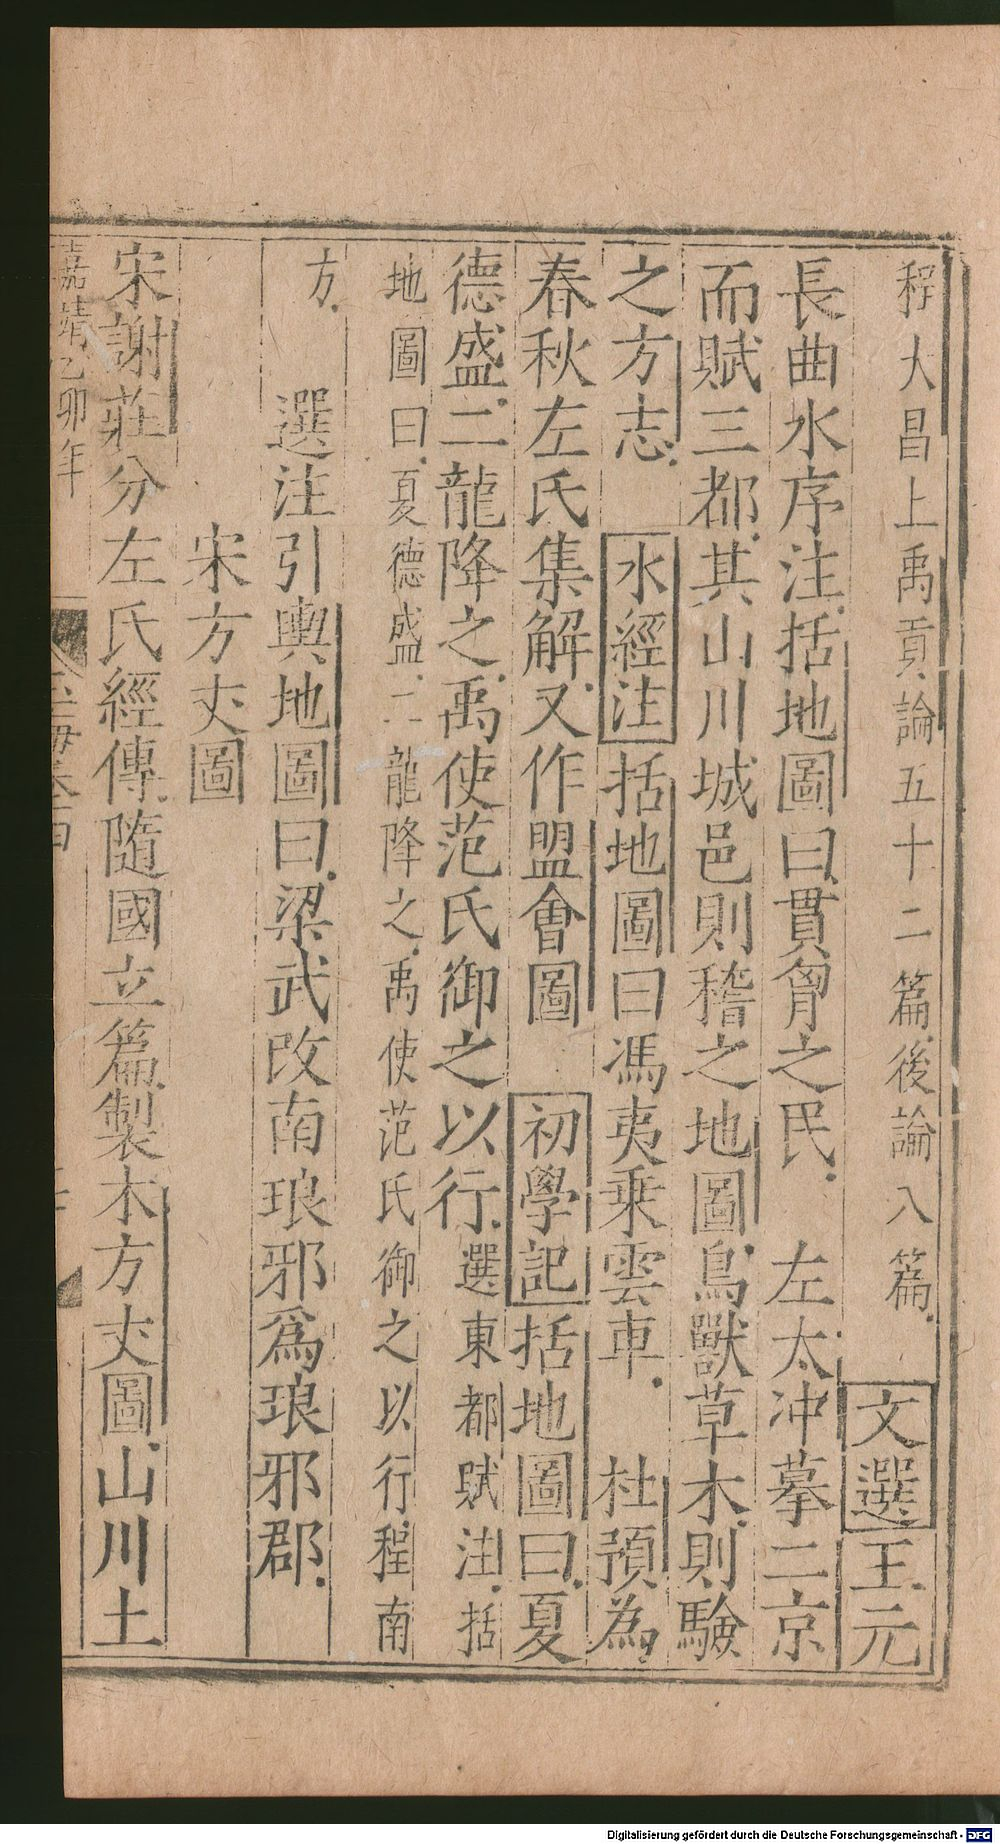 程大昌上禹貢論五十二篇後論八篇　文選王元
長曲水序注括地圖曰貫胷之民　左太冲摹二京
而賦三都其山川城邑則稽之地圖鳥獸草木則驗
之方志　水經注括地圖曰馮夷乘雲車　杜預為
春秋左氏集解又作盟會圖　初學記括地圖曰夏
德盛二龍降之禹使范氏御之以行選東都賦注括
地圖曰夏德盛二龍降之禹使范氏御之以行程南
方　選注引輿地圖曰梁武改南琅邪爲琅邪郡
宋方丈圖
宋謝莊分左氏經傳隨國立篇製木方丈圖山川土
嘉靖乙卯年
玉海卷
Digitalisierung gefördert durch die Deutsche Forschungsgemeinschaft - DFG